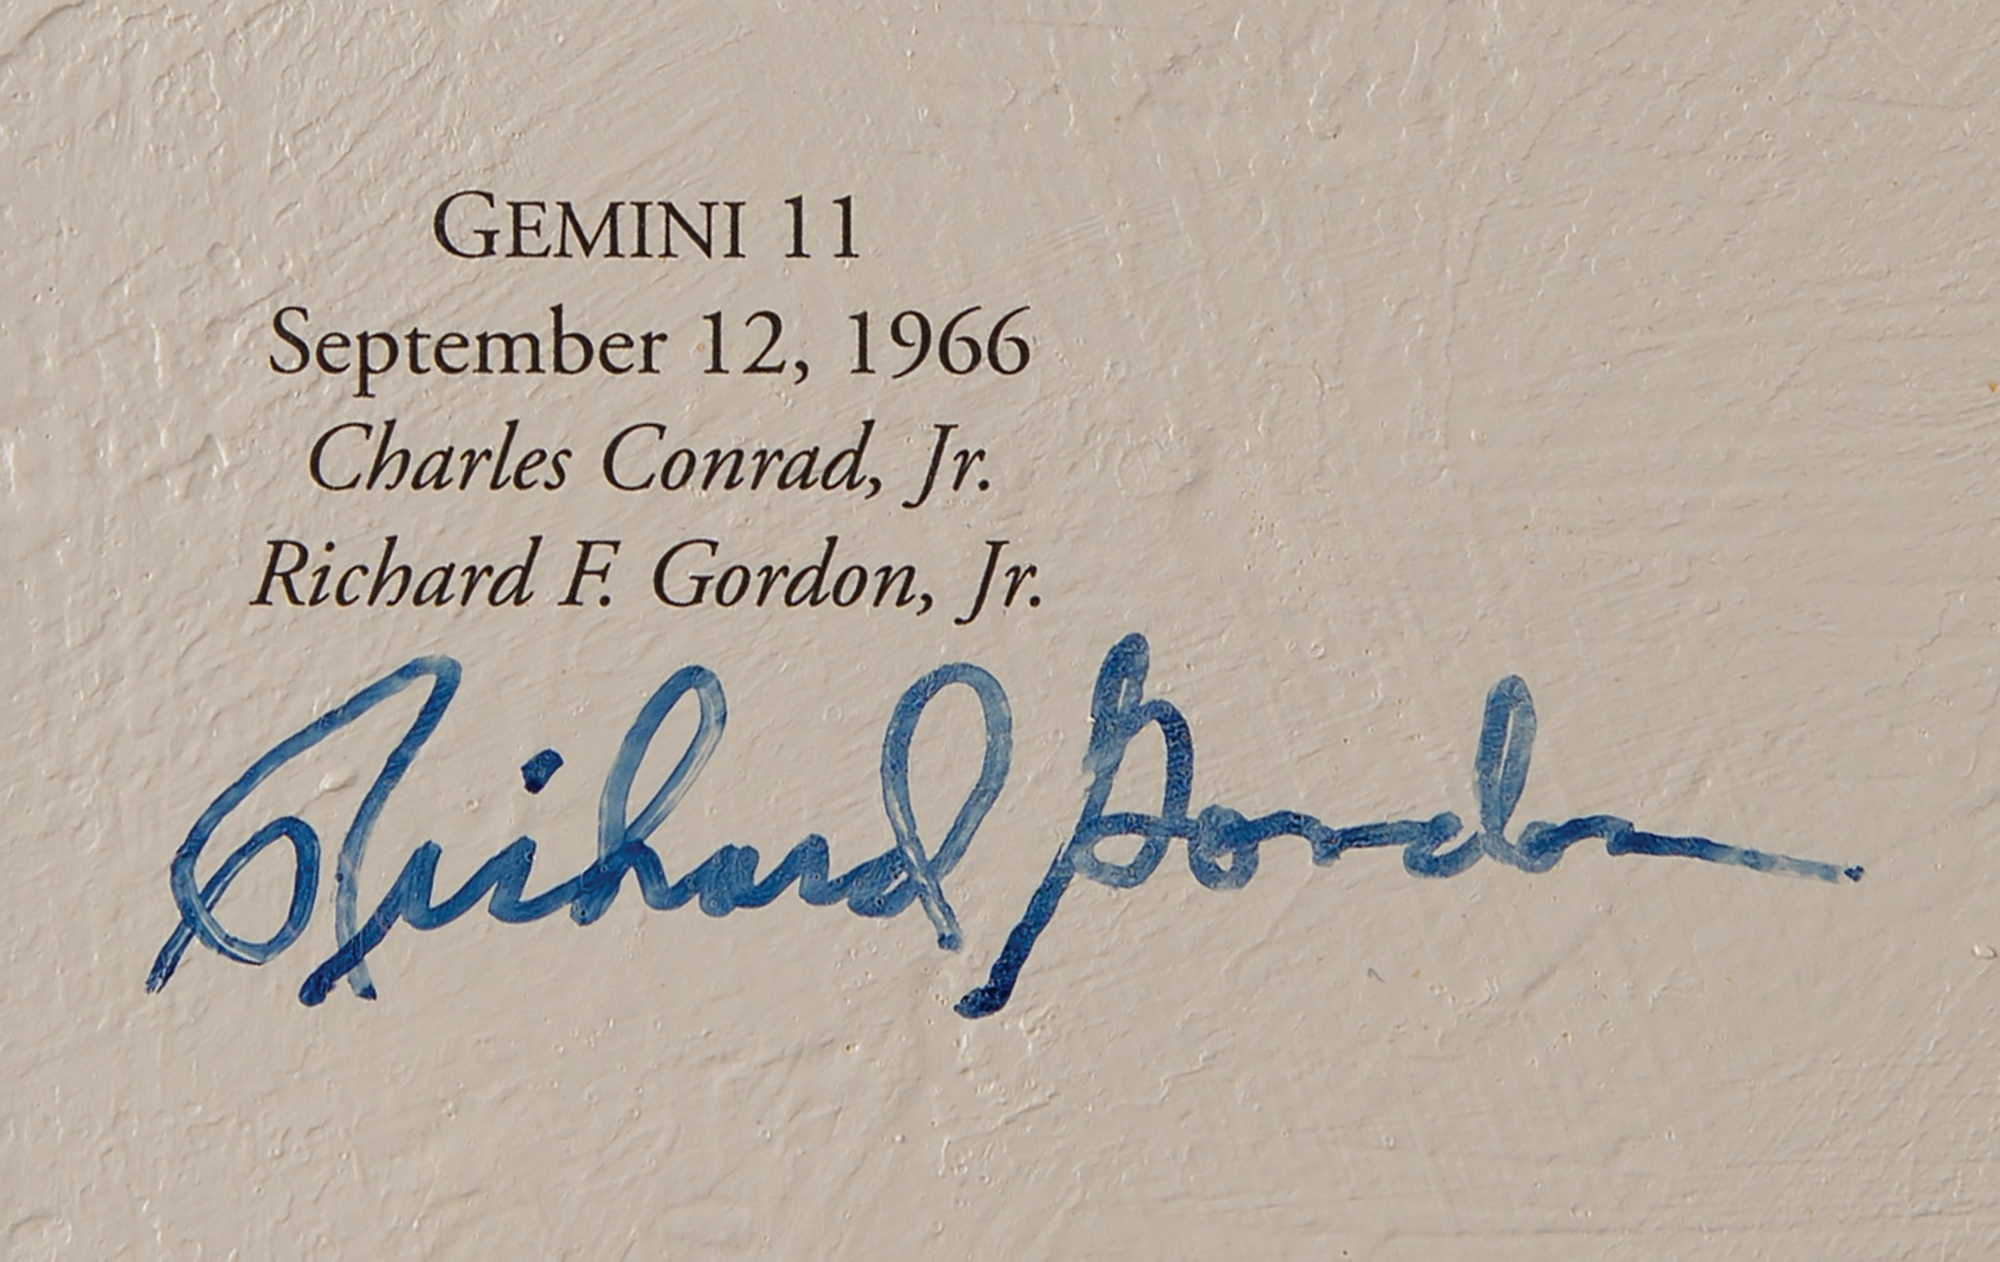 GEMINI 11
September 12, 1966
Charles Conrad, Jr.
Richard F. Gordon, Jr.
Richard Gordon